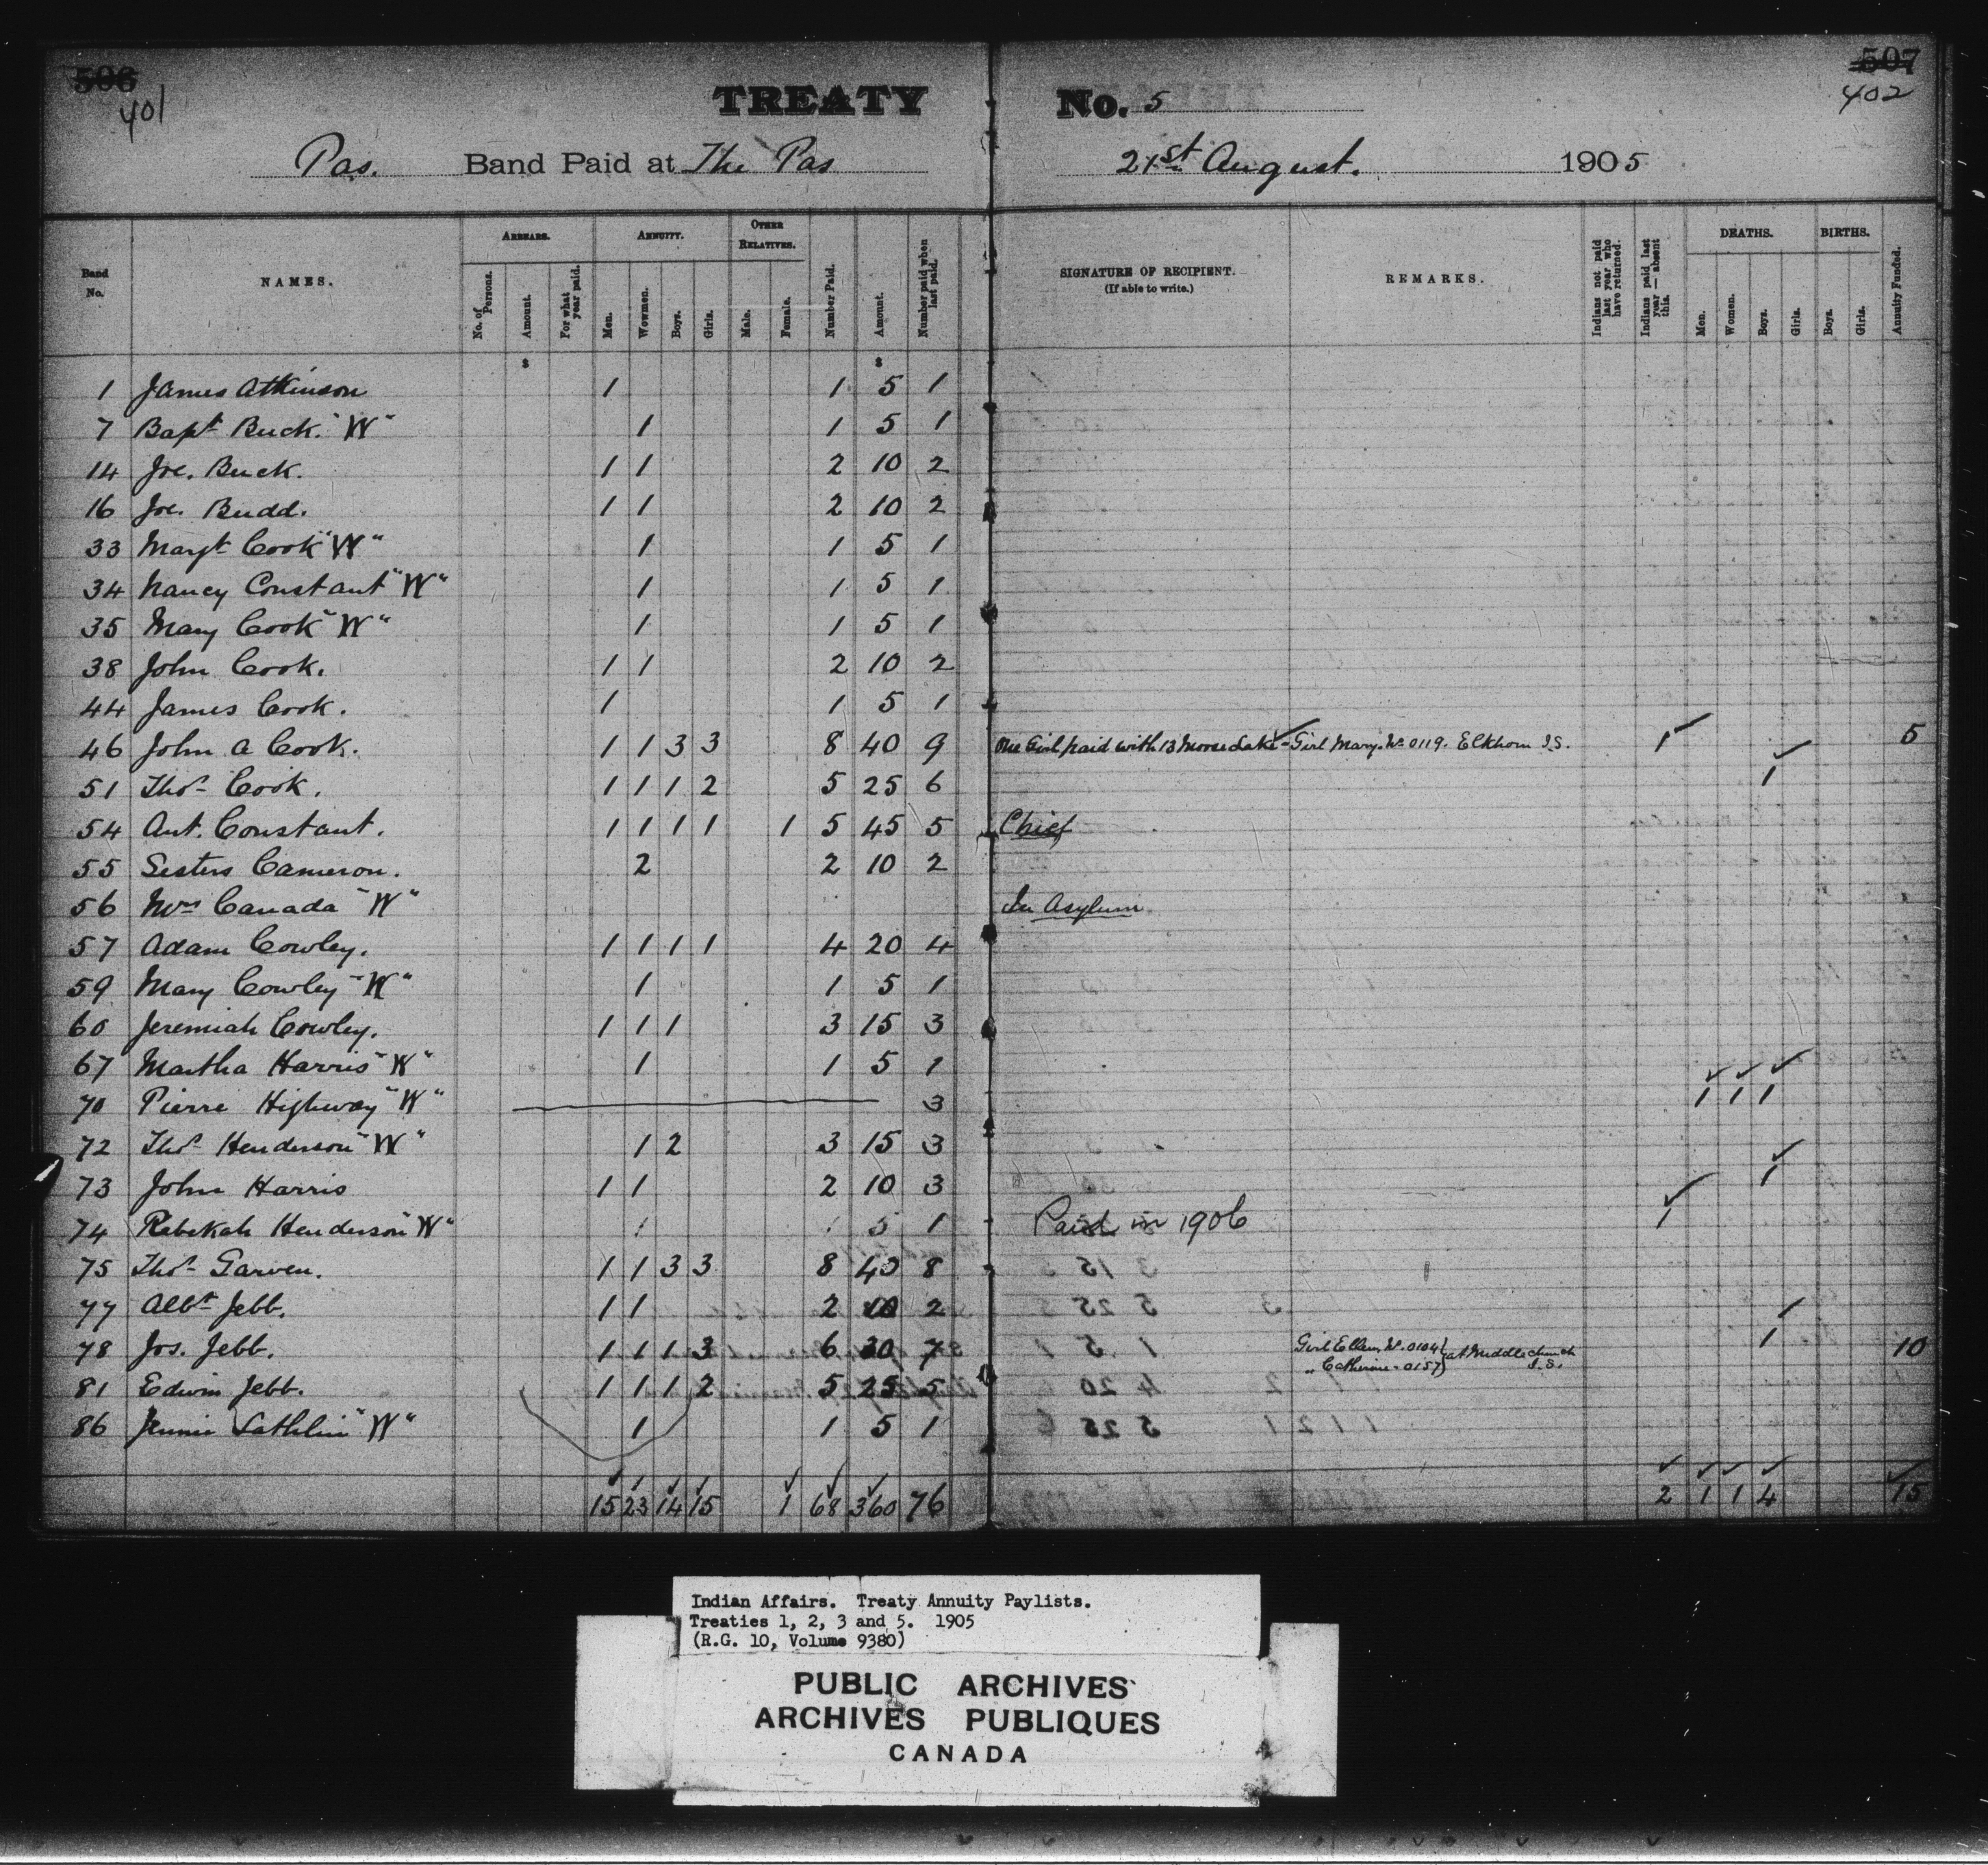 506 507
401 402
TREATY No. 5
Pas. Band Paid at The Pas 21st August. 1905
Band No. NAMES. ARREARS. No. of Persons. Amount. For what year paid. ANNUITY. Men. Wowmen. Boys. Girls. OTHER RELATIVES. Male. Female. Number Paid. Amount. Number paid when last paid. SIGNATURE OF RECIPIENT. (If able to write.) REMARKS. Indians not paid last year who have returned. Indians paid last year — absent this. DEATHS. Men. Women. Boys. Girls. BIRTHS. Boys. Girls. Annuity Funded.
$ $
1 James Atkinson 1 1 5 1
7 Bapt Buck. "W" 1 1 5 1
14 Joe. Buck. 1 1 2 10 2
16 Joe. Budd. 1 1 2 10 2
33 Margt Cook "W" 1 1 5 1
34 Nancy Constant "W" 1 1 5 1
35 Mary Cook "W" 1 1 5 1
38 John Cook. 1 1 2 10 2
44 James Cook. 1 1 5 1
46 John A Cook. 1 1 3 3 8 40 9 One Girl paid with 13 Moose Lake - Girl Mary. No 0119. Elkhorn I.S. 1 5
51 Thos Cook. 1 1 1 2 5 25 6 1
54 Ant. Constant. 1 1 1 1 1 5 45 5 Chief
55 Sisters Cameron. 2 2 10 2
56 Mrs Canada "W" In Asylum
57 Adam Cowley. 1 1 1 1 4 20 4
59 Mary Cowley "W" 1 1 5 1
60 Jeremiah Cowley. 1 1 1 3 15 3
67 Martha Harris "W" 1 1 5 1
70 Pierre Highway "W" 3 1 1 1
72 Thos Henderson "W" 1 2 3 15 3
73 John Harris 1 1 2 10 3 1
74 Rebekah Henderson "W" 1 1 5 1 Paid in 1906 1
75 Thos Garven. 1 1 3 3 8 40 8
77 Albt Jebb. 1 1 2 10 2
78 Jos. Jebb. 1 1 1 3 6 30 7 Girl Ellen, No. 0104 1 10
" Catherine - 0157 } at Middlechurch I.S.
81 Edwin Jebb. 1 1 1 2 5 25 5
86 Jennie Lathlin "W" 1 1 5 1
15 23 14 15 1 68 360 76 2 1 1 4 15
Indian Affairs. Treaty Annuity Paylists.
Treaties 1, 2, 3 and 5. 1905
(R.G. 10, Volume 9380)
PUBLIC ARCHIVES
ARCHIVES PUBLIQUES
CANADA